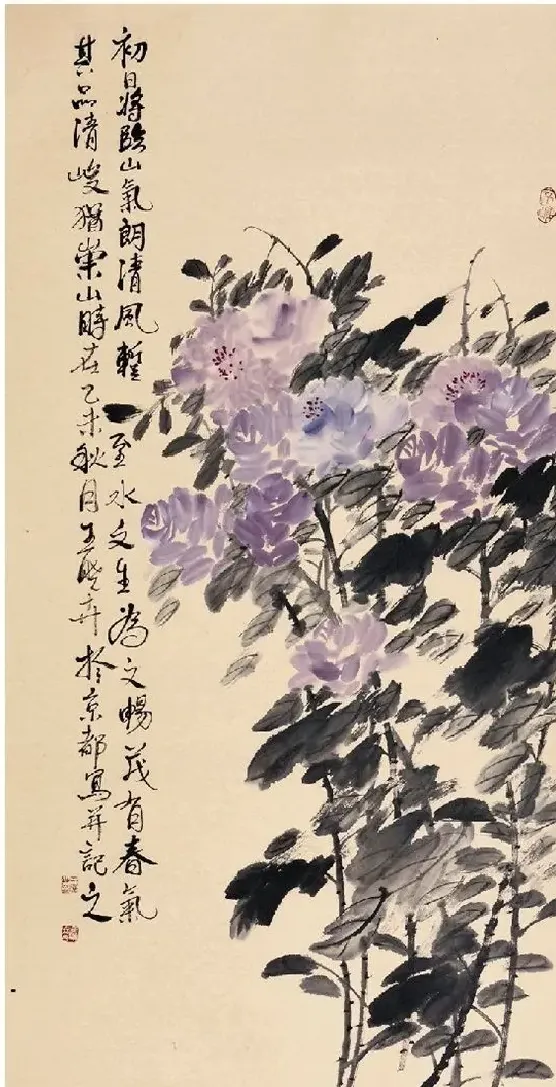 初日將臨山氣朗清風暫至水文生為文暢茂有春氣
其品清峻猶崇山時在乙未秋月王卉於京都寫并記之